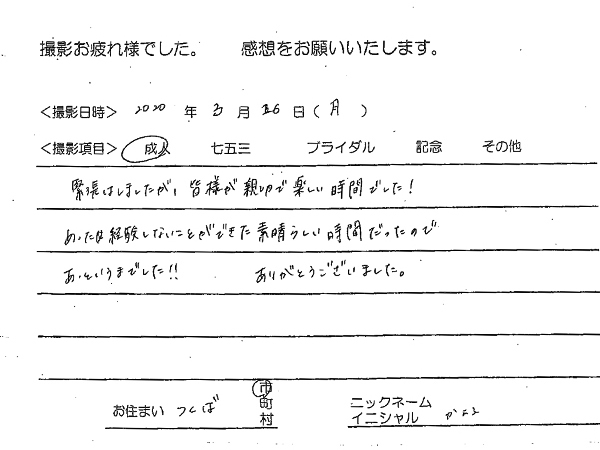 撮影お疲れ様でした。　感想をお願いいたします。
<撮影日時> 2020 年 3 月 26 日(月)
<撮影項目> 成人 七五三 ブライダル 記念 その他
緊張はしましたが、皆様が親切で楽しい時間でした!
経験しないことができた素晴らしい時間だったので
あっというまでした!! ありがとうございました。
お住まい つくば 市 町 村
ニックネーム
イニシャル